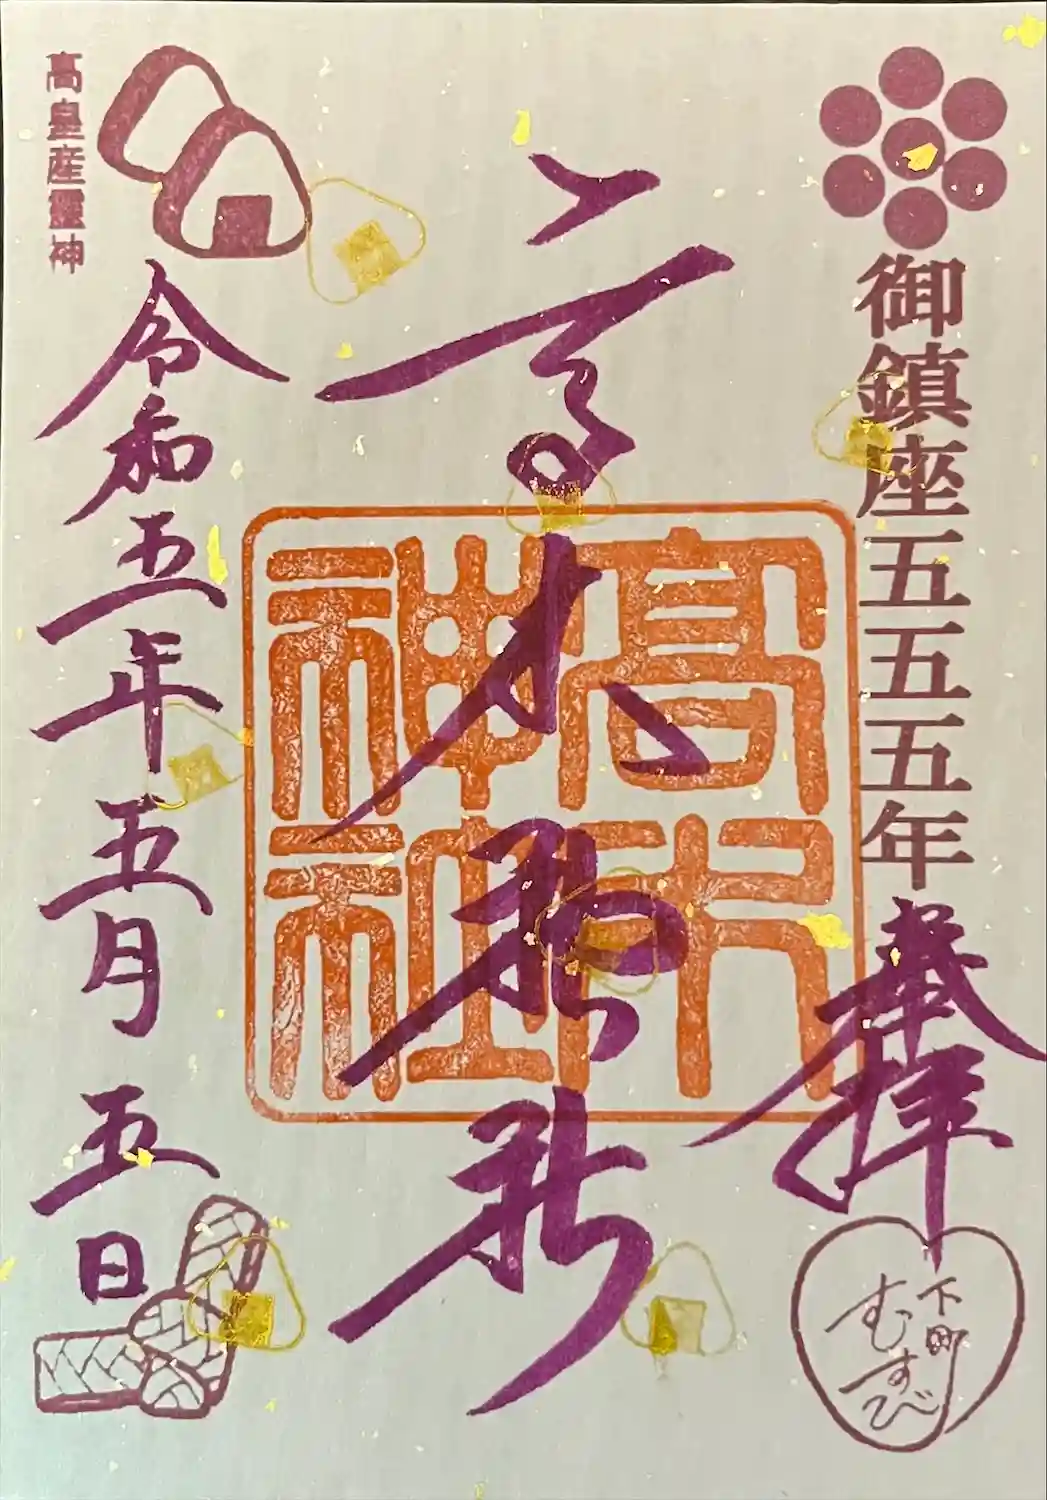 御鎮座五五五年
奉拝
下町
むすび
高木神社
高木神社
高皇産靈神
令和五年五月五日